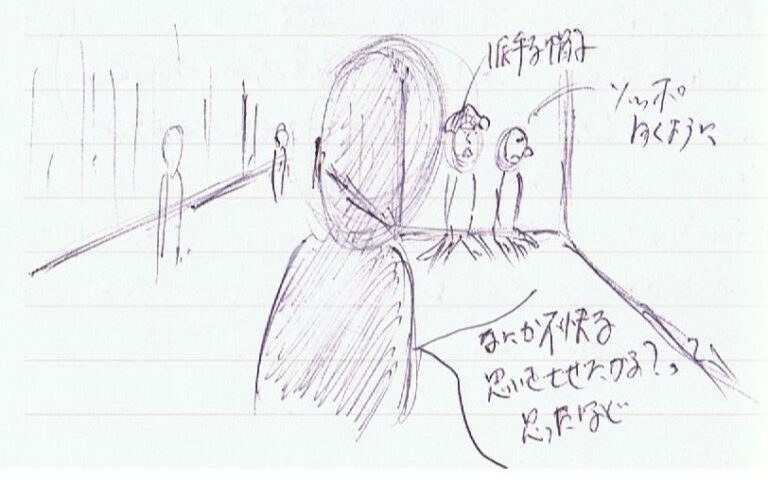 派手な帽子
ソッポ
向くように
なにか不快な
思いをさせたかな？って
思ったほど